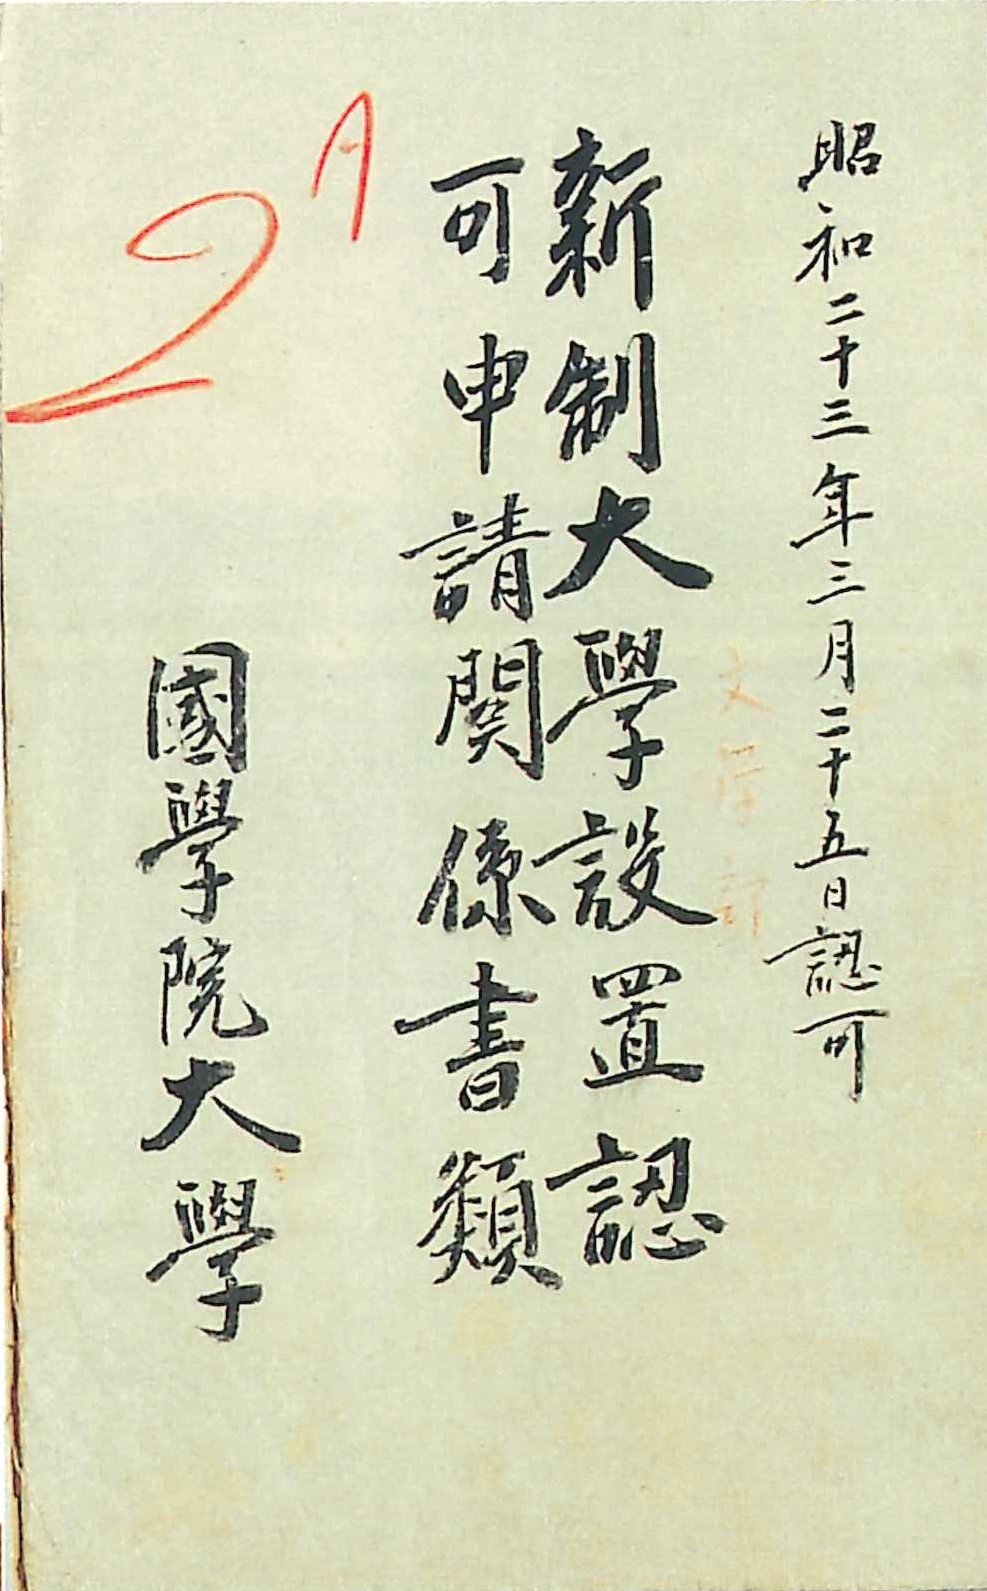 昭和二十三年三月二十五日認可
文学部
新制大學設置認
可申請関係書類
國學院大學
2A